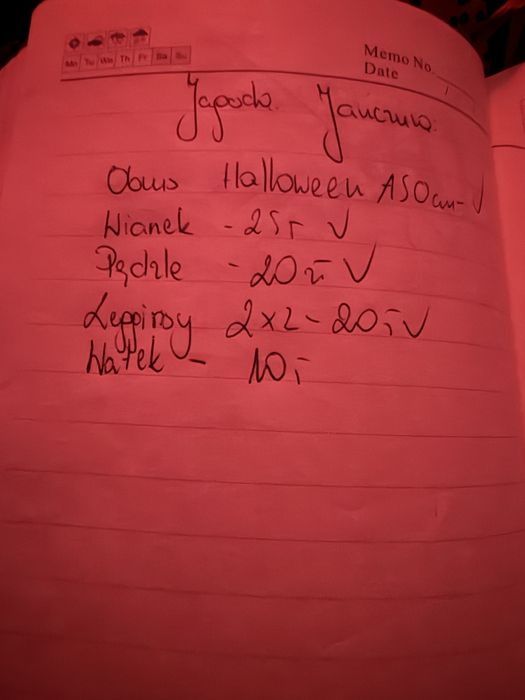 Mo Tu We Th Fr Sa Su
Memo No.
Date
Jagoda
Obrus Halloween 150cm - V
Wianek - 25,- V
Pędzle - 20,- V
Legginsy 2x2 - 20,- V
Wałek - 10,-